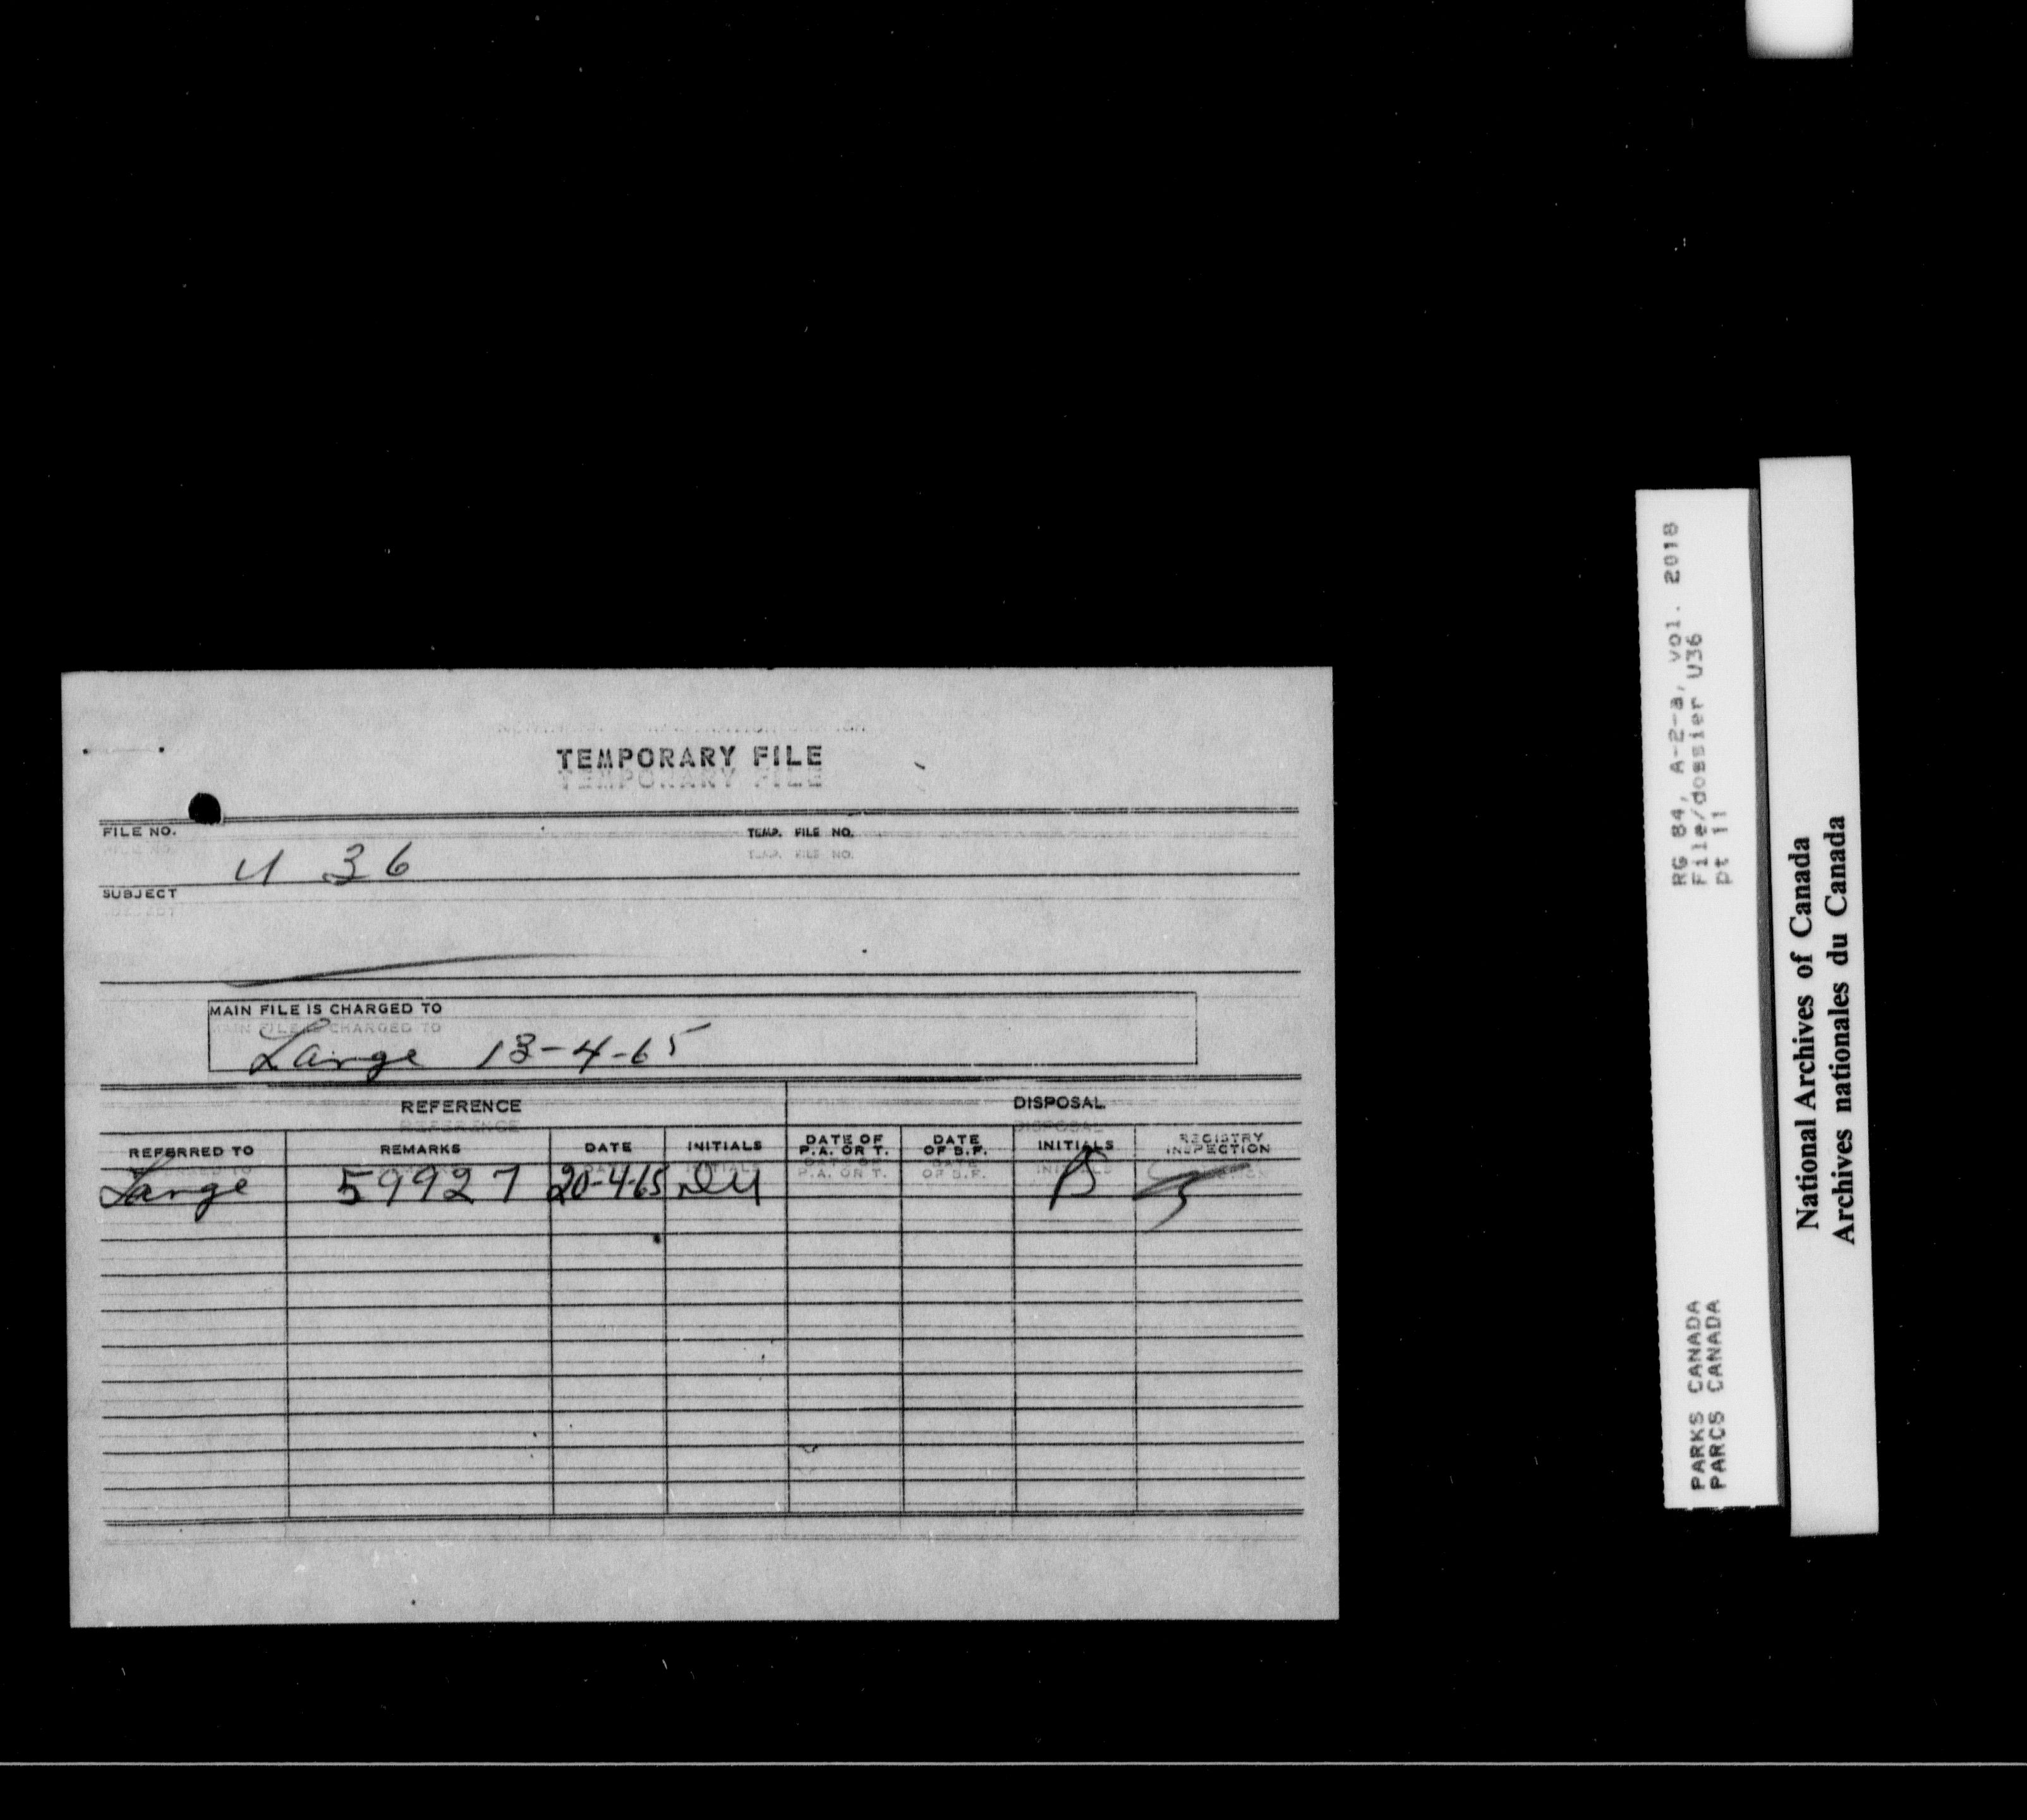 TEMPORARY FILE
FILE NO. U 36 TEMP. FILE NO.
SUBJECT
MAIN FILE IS CHARGED TO
Large 13-4-65
REFERENCE DISPOSAL
REFERRED TO REMARKS DATE INITIALS DATE OF P.A. OR T. DATE OF B.F. INITIALS REGISTRY INSPECTION
Large 59927 20-4-65
RG 84, A-2-a, vol. 2018
File/dossier U36
pt 11
PARKS CANADA
PARCS CANADA
National Archives of Canada
Archives nationales du Canada